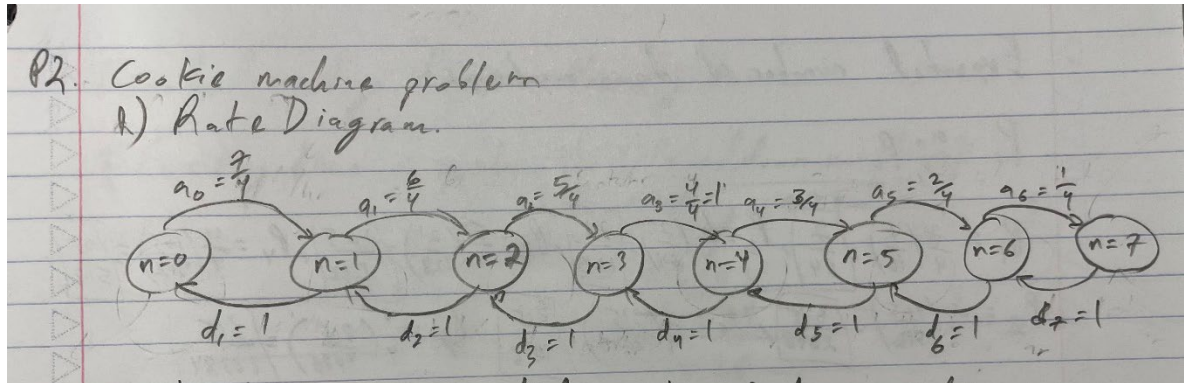 P2. Cookie machine problem
A) Rate Diagram.
a₀ = 7/4 a₁ = 6/4 a₂ = 5/4 a₃ = 4/4 = 1 a₄ = 3/4 a₅ = 2/4 a₆ = 1/4
n=0 n=1 n=2 n=3 n=4 n=5 n=6 n=7
d₁ = 1 d₂ = 1 d₃ = 1 d₄ = 1 d₅ = 1 d₆ = 1 d₇ = 1